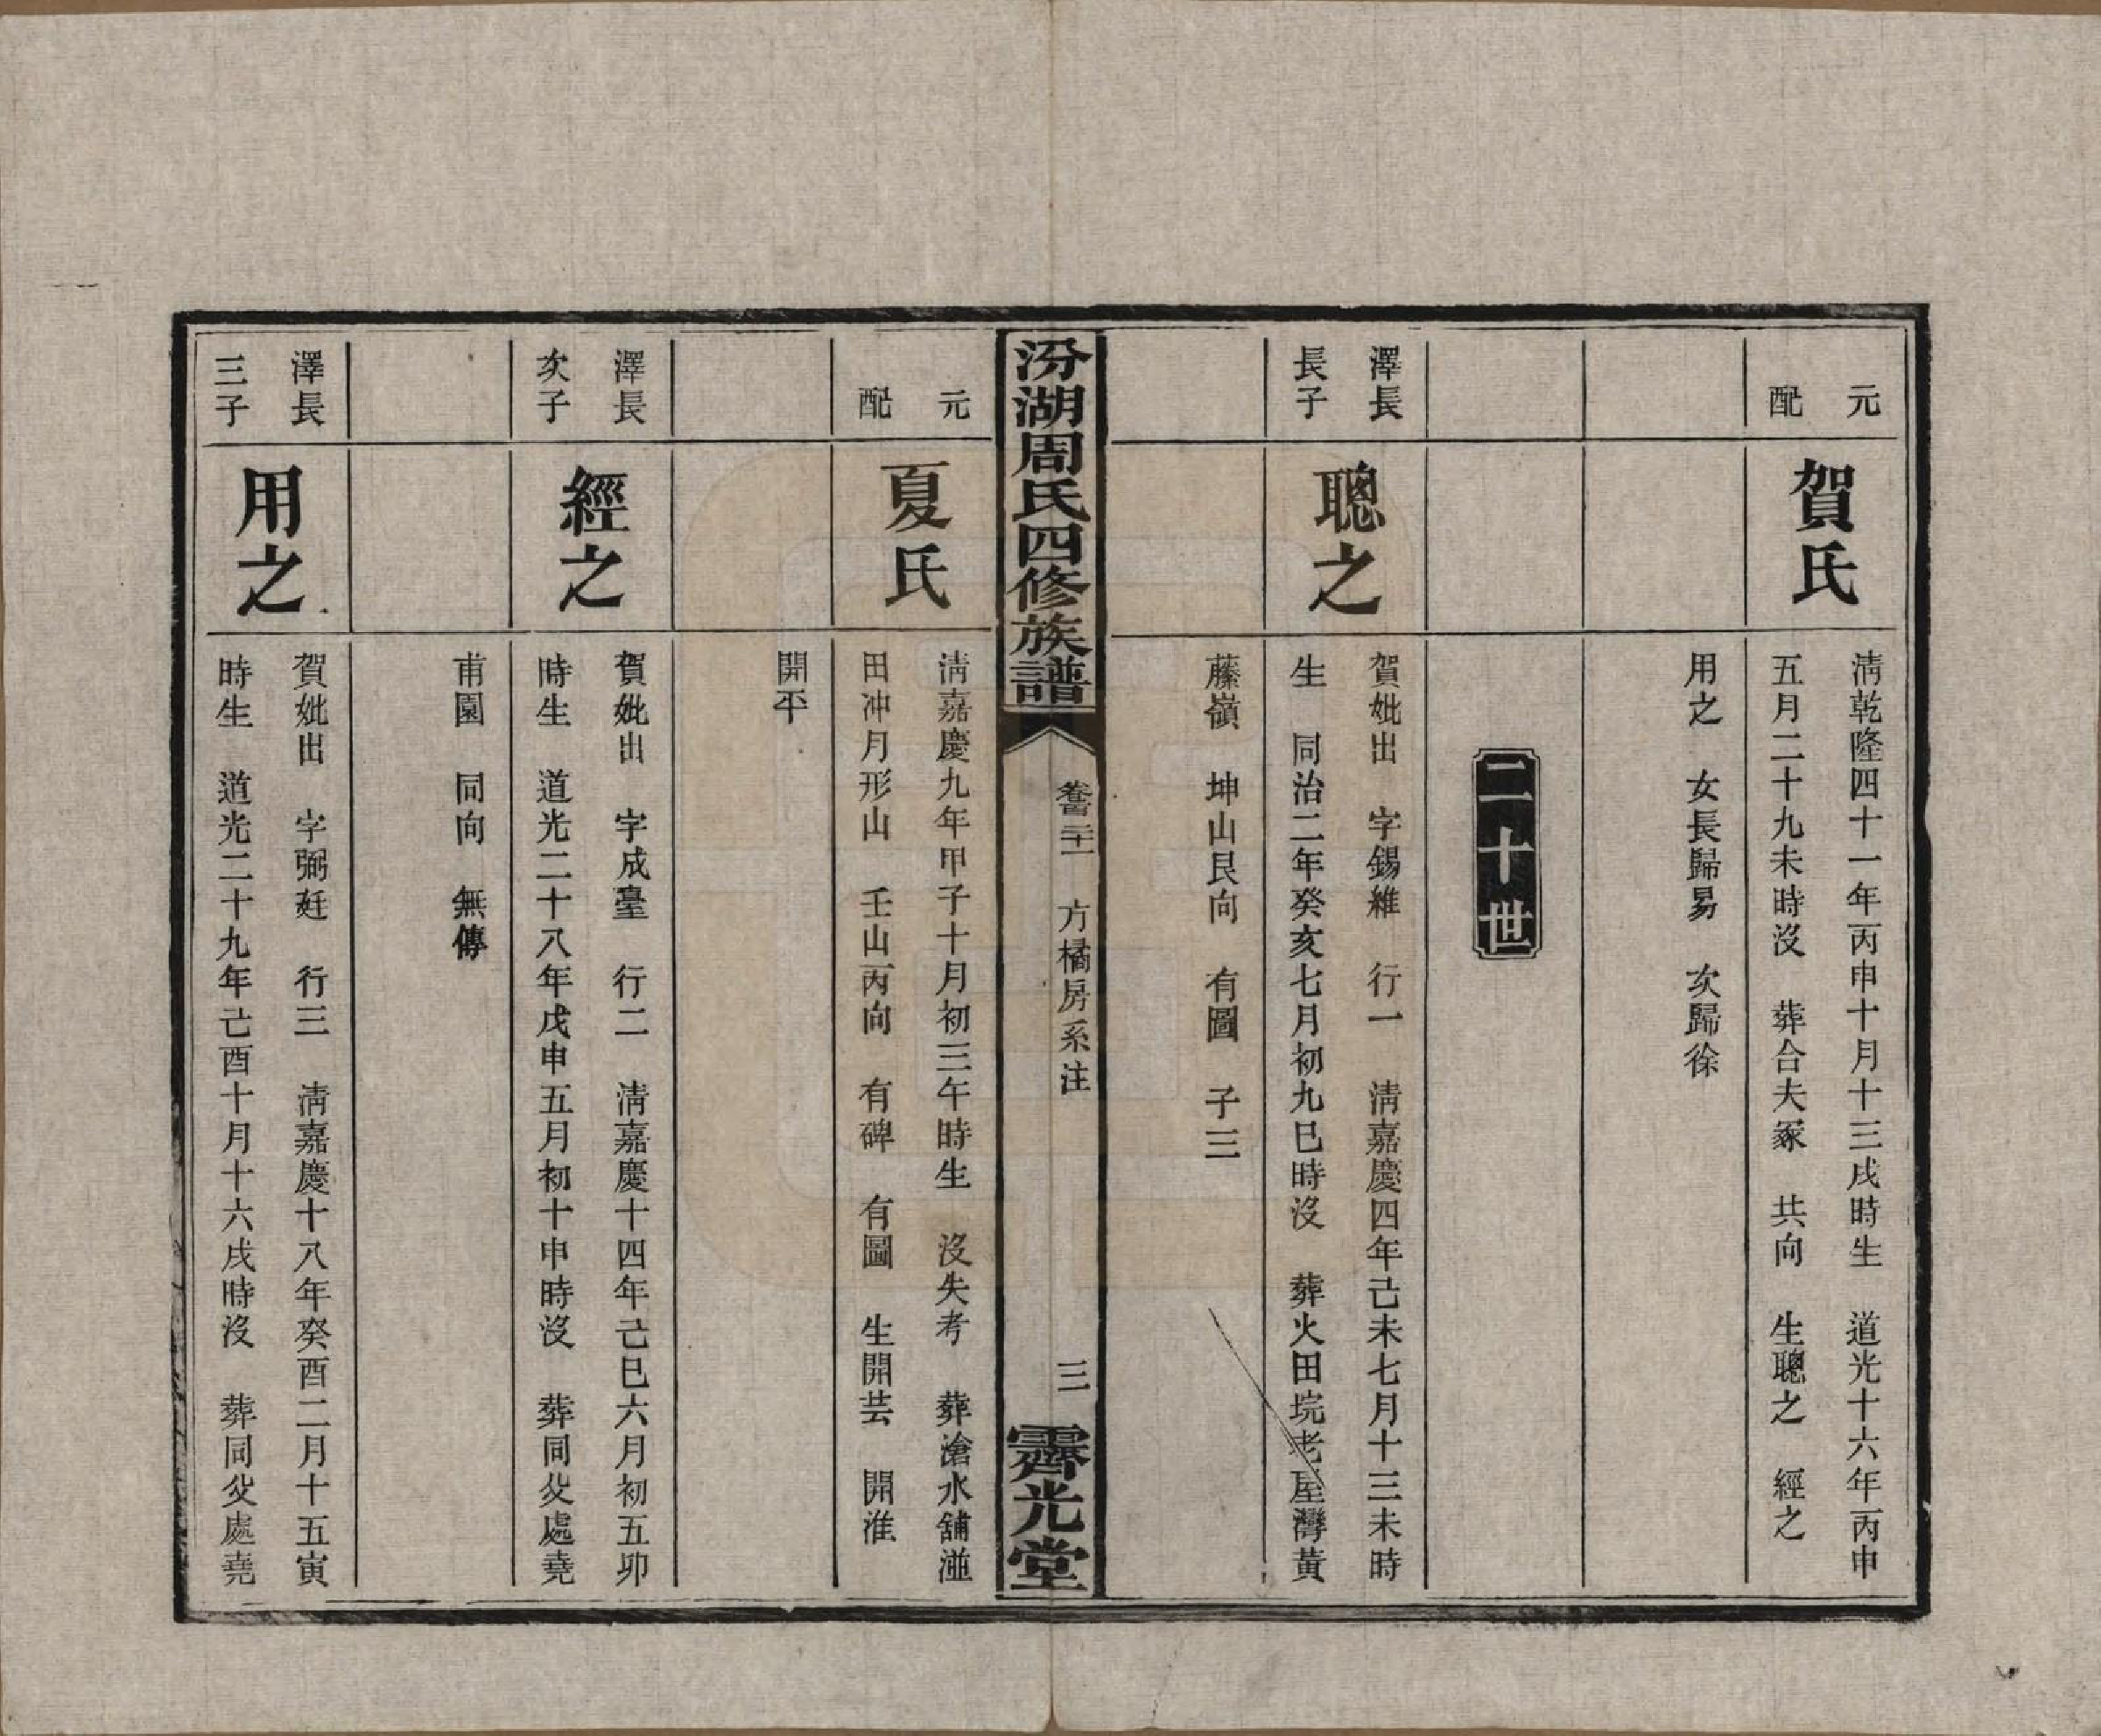 元
配
賀氏
淸乾隆四十一年丙申十月十三戌時生　道光十六年丙申
五月二十九未時沒　葬合夫冢　共向　生聰之　經之
用之　女長歸易　次歸徐
二十世
澤長
長子
聰之
賀妣出　字錫維　行一　淸嘉慶四年己未七月十三未時
生　同治二年癸亥七月初九巳時沒　葬火田垸老屋灣黃
藤嶺　坤山艮向　有圖　子三
汾湖周氏四修族譜
方橘房系注
三
霽光堂
元
配
夏氏
淸嘉慶九年甲子十月初三午時生　沒失考　葬滄水舖湴
田冲月形山　壬山丙向　有碑　有圖　生開芸　開淮
開平
澤長
次子
經之
賀妣出　字成臺　行二　淸嘉慶十四年己巳六月初五卯
時生　道光二十八年戊申五月初十申時沒　葬同父處堯
甫園　同向　無傳
澤長
三子
用之
賀妣出　字弼廷　行三　淸嘉慶十八年癸酉二月十五寅
時生　道光二十九年己酉十月十六戌時沒　葬同父處堯